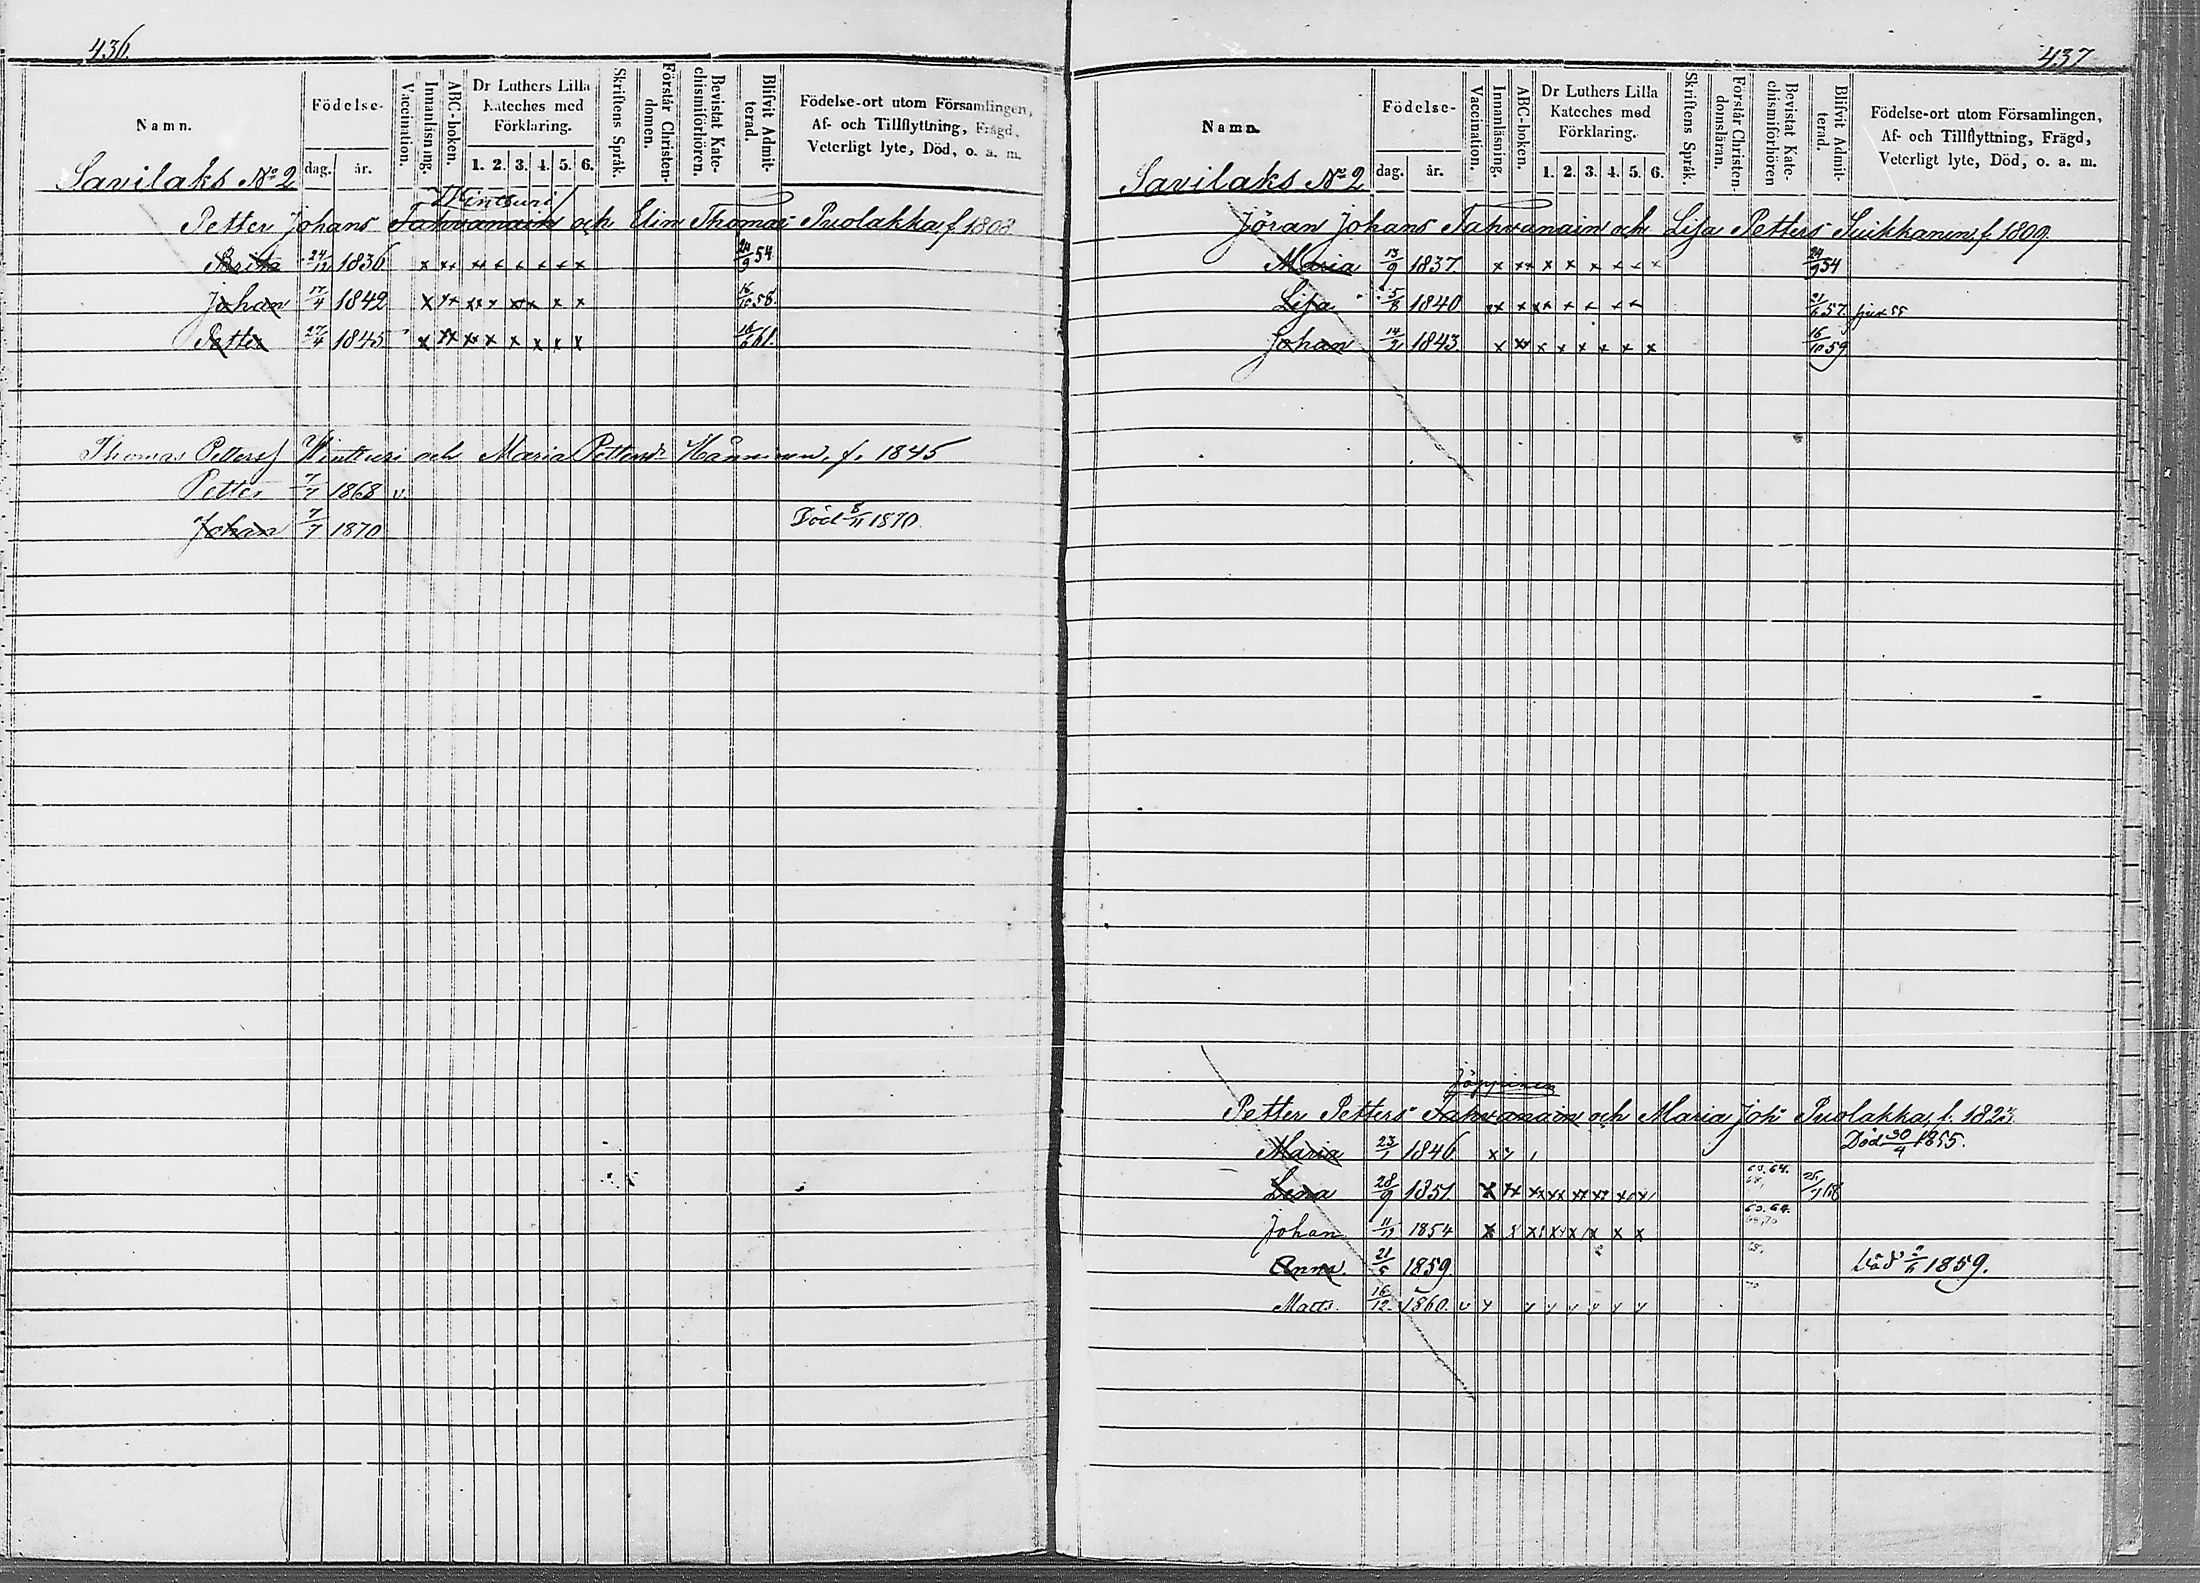 436.
Namn.
Födelse-
dag. år.
Vaccination.
Innanläsning.
ABC-boken.
Dr Luthers Lilla
Kateches med
Förklaring.
1. 2. 3. 4. 5. 6.
Skriftens Språk.
Förstår Christen-
domen.
Bevistat Kate-
chismiförhören.
Blifvit Admit-
terad.
Födelse-ort utom Församlingen,
Af- och Tillflyttning, Frägd,
Veterligt lyte, Död, o. a. m.
Savilaks No 2
Wintturi
Petter Johans Tahvanain och Elin Thomas Puolakka f. 1808
Brita 24/12 1836 24/9 54
Johan 17/4 1842 16/10 58
Petter 27/4 1845 16/6 61.
Thomas Petterss Wintturi och Maria Pettersdr Hänninen, f. 1845
Petter 7/7 1868 v.
Johan 7/7 1870 Död 8/11 1870.
437
Namn.
Födelse-
dag. år.
Vaccination.
Innanläsning.
ABC-boken.
Dr Luthers Lilla
Kateches med
Förklaring.
1. 2. 3. 4. 5. 6.
Skriftens Språk.
Förstår Christen-
domsläran.
Bevistat Kate-
chismiförhören
Blifvit Admit-
terad.
Födelse-ort utom Församlingen,
Af- och Tillflyttning, Frägd,
Veterligt lyte, Död, o. a. m.
Savilaks No 2
Jöran Johans Tahvanain och Lisa Petters Suikkanen, f. 1809.
Maria 13/9 1837 24/9 54
Lisa 5/8 1840 21/6 57
Johan 14/2 1843 16/10 59
Jäppinen
Petter Petters Tahvanain och Maria Joh Puolakka, f. 1823.
Maria 23/1 1846 Död 30/4 1855.
Lena 28/9 1851 63. 64.
Johan 11/12 1854 60. 64.
Anna. 21/5 1859. Död 1859.
Matts. 16/12 1860. v